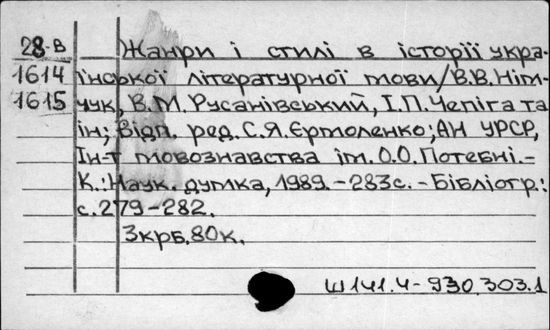 28-В Жанри і стилі в історії укра-
1614 їнської літературної мови/В.В.Нім-
1615 чук, В.М.Русанівський, І.П.Чепіга та
ін; Відп. ред. С.Я.Єрмоленко; АН УРСР,
Ін-т мовознавства ім. О.О.Потебні.-
К.: Наук. думка, 1989.-283с.-Бібліогр.:
с.279-282.
3крб.80к.
Ш141.4-930.303.1